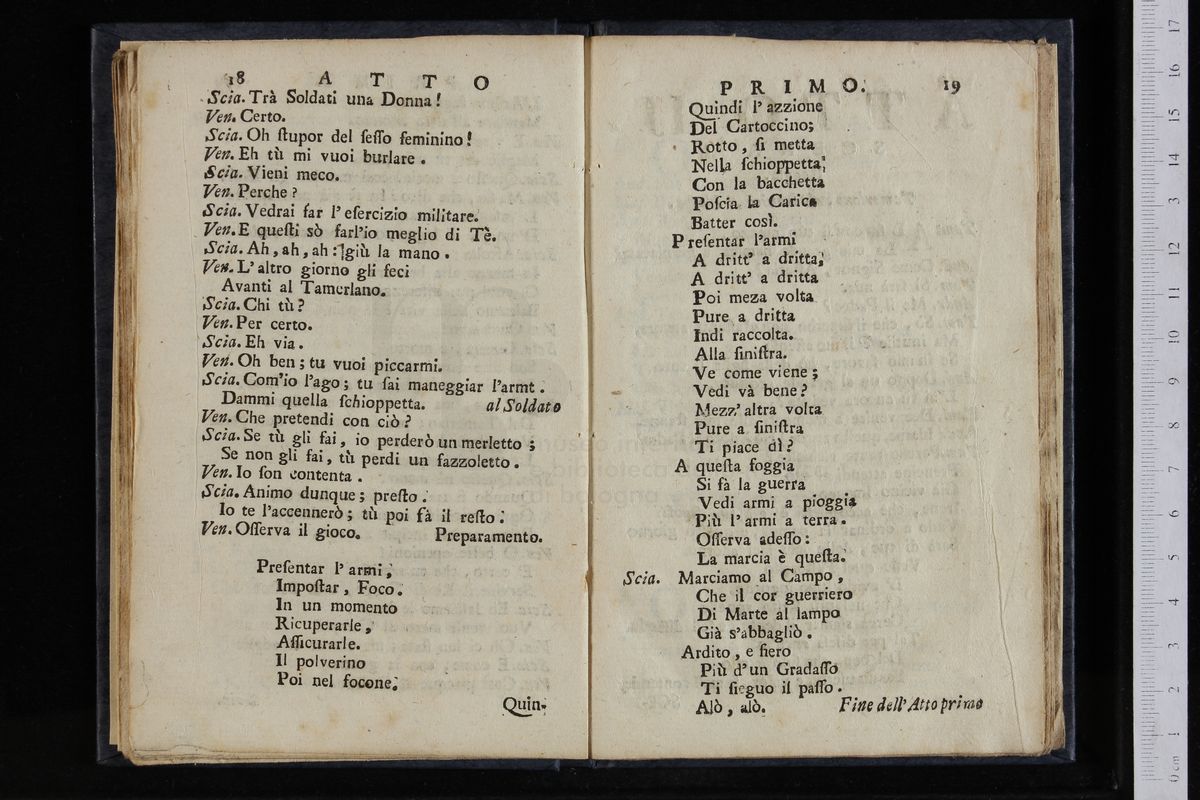 18 ATTO
Scia. Trà Soldati una Donna!
Ven. Certo.
Scia. Oh ſtupor del ſeſſo feminino!
Ven. Eh tù mi vuoi burlare.
Scia. Vieni meco.
Ven. Perche?
Scia. Vedrai far l'eſercizio militare.
Ven. E queſti sò farl'io meglio di Tè.
Scia. Ah, ah, ah: giù la mano.
Ven. L'altro giorno gli feci
Avanti al Tamerlano.
Scia. Chi tù?
Ven. Per certo.
Scia. Eh via.
Ven. Oh ben; tu vuoi piccarmi.
Scia. Com'io l'ago; tu ſai maneggiar l'armt.
Dammi quella ſchioppetta. al Soldato
Ven. Che pretendi con ciò?
Scia. Se tù gli fai, io perderò un merletto;
Se non gli fai, tù perdi un fazzoletto.
Ven. Io ſon contenta.
Scia. Animo dunque; preſto.
Io te l'accennerò; tù poi fà il reſto.
Ven. Oſſerva il gioco. Preparamento.
Preſentar l'armi,
Impoſtar, Foco.
In un momento
Ricuperarle,
Aſſicurarle.
Il polverino
Poi nel focone.
Quin-
PRIMO. 19
Quindi l'azzione
Del Cartoccino;
Rotto, ſi metta
Nella ſchioppetta;
Con la bacchetta
Poſcia la Carica
Batter così.
Preſentar l'armi
A dritt' a dritta,
A dritt' a dritta
Poi meza volta
Pure a dritta
Indi raccolta.
Alla ſiniſtra.
Ve come viene;
Vedi và bene?
Mezz'altra volta
Pure a ſiniſtra
Ti piace dì?
A queſta foggia
Si fà la guerra
Vedi armi a pioggia
Più l'armi a terra.
Oſſerva adeſſo:
La marcia è queſta.
Scia. Marciamo al Campo,
Che il cor guerriero
Di Marte al lampo
Già s'abbagliò.
Ardito, e fiero
Più d'un Gradaſſo
Ti ſieguo il paſſo.
Alò, alò. Fine dell'Atto primo
0 cm 1 2 3 4 5 6 7 8 9 10 11 12 13 14 15 16 17